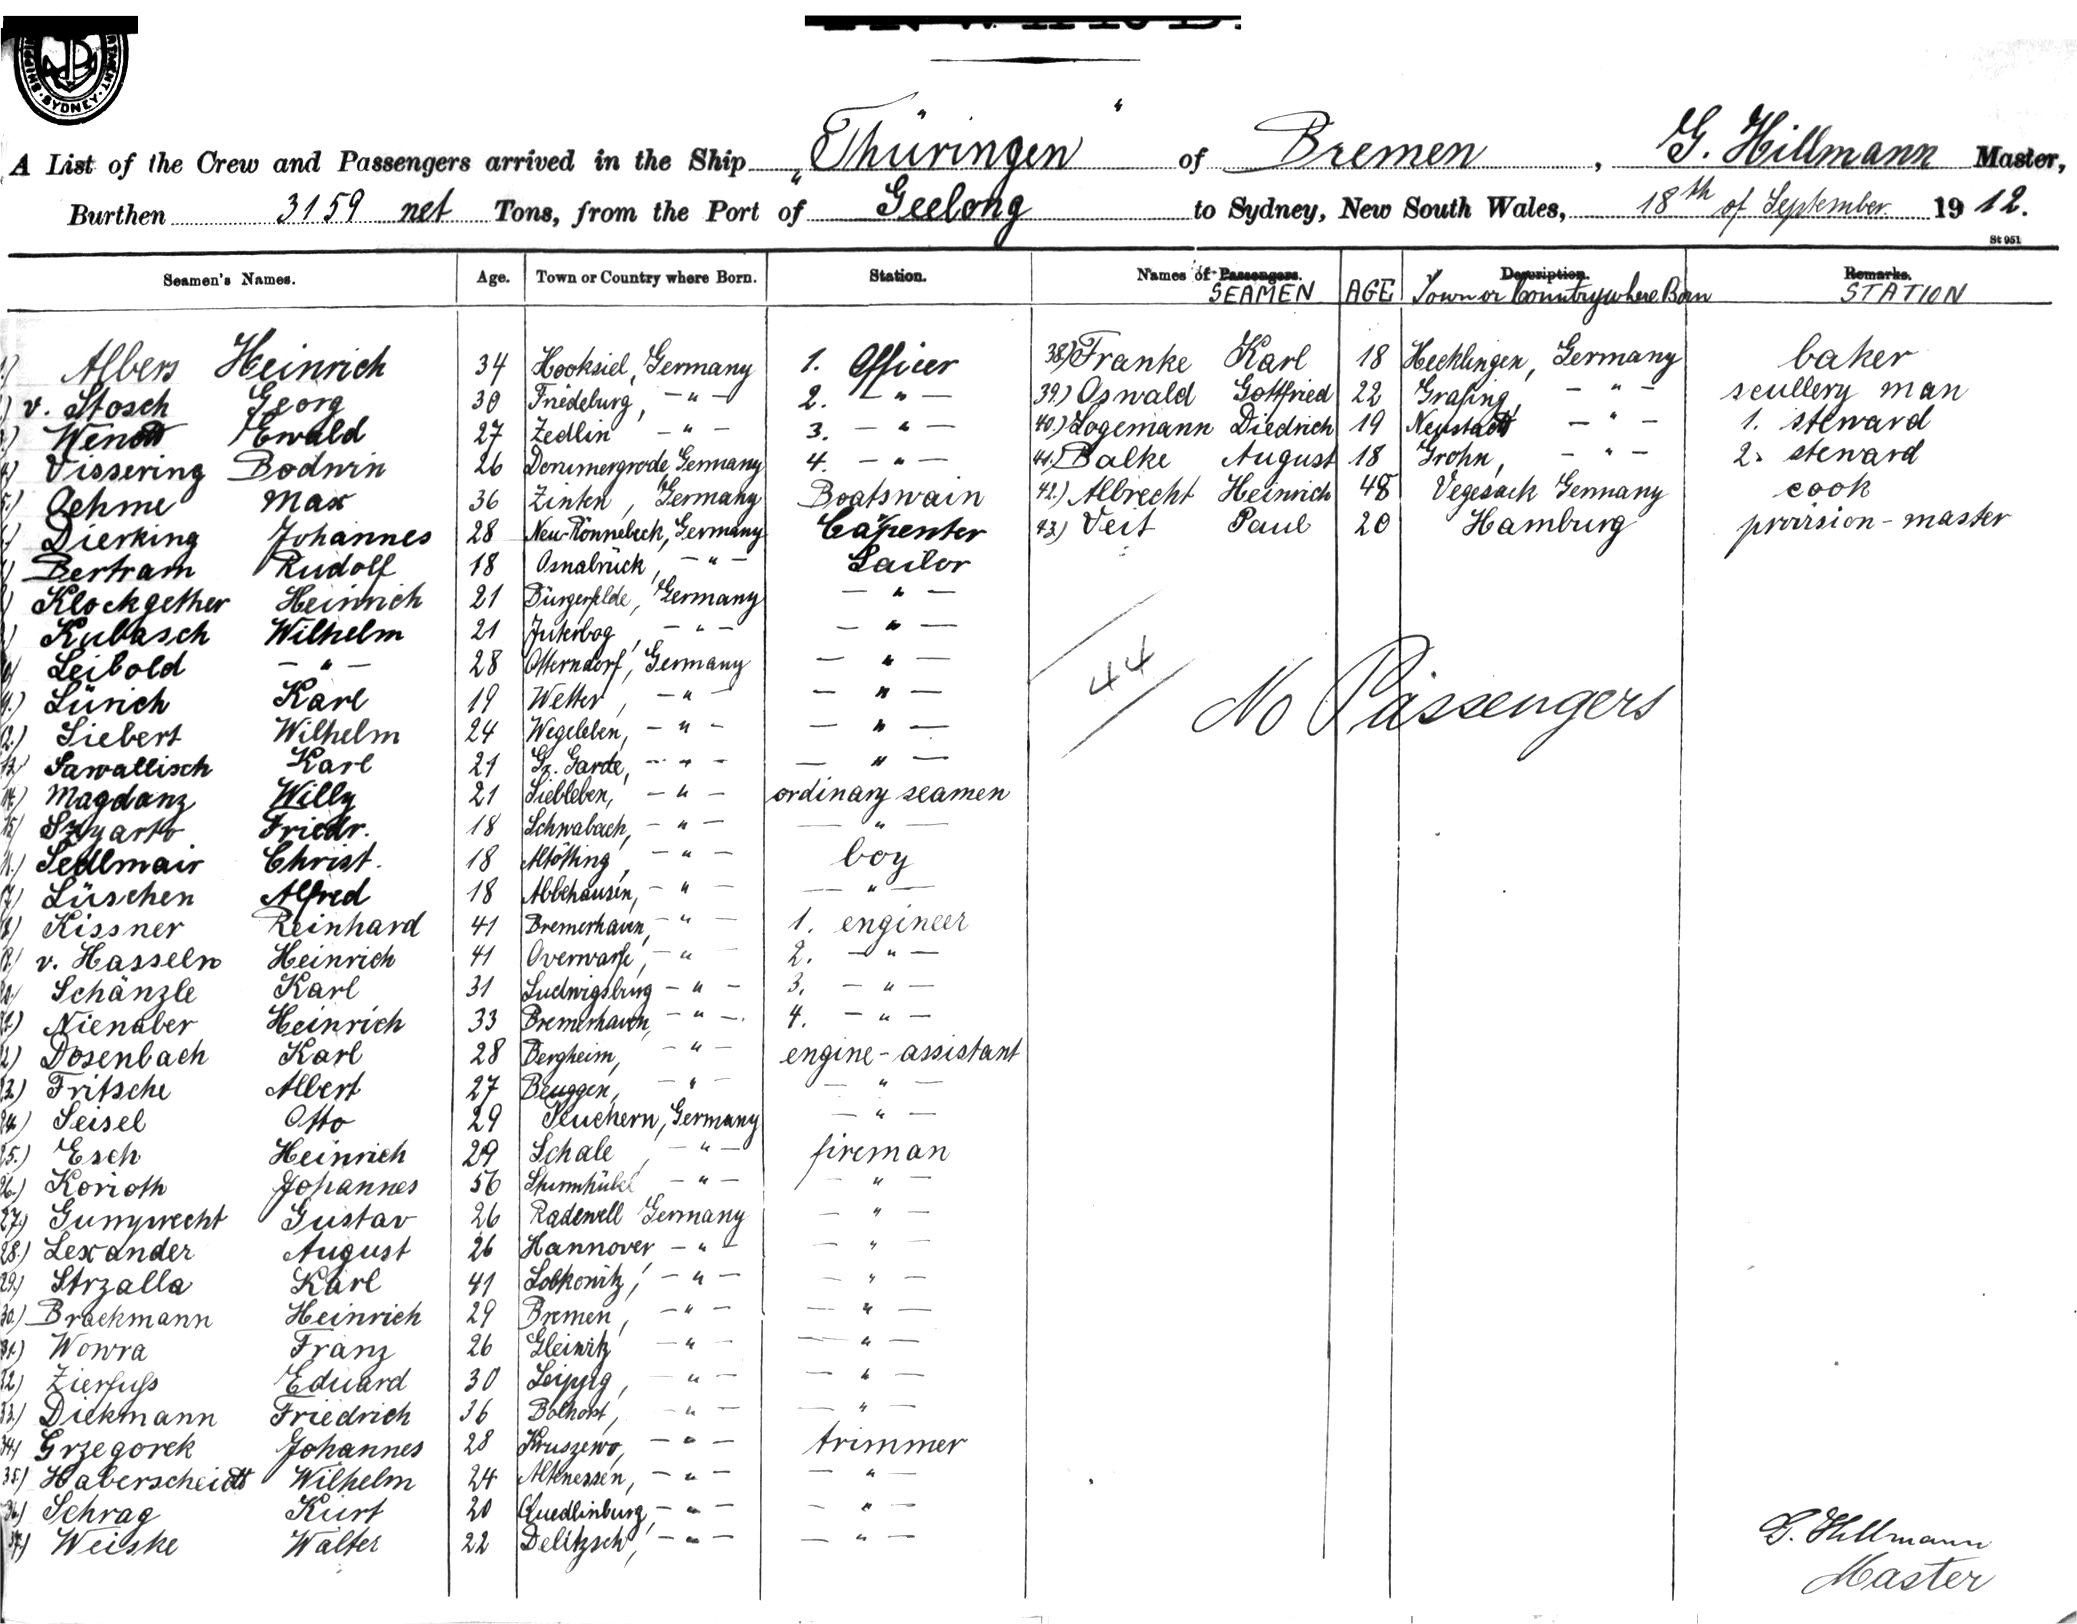 SHIPPING DEPARTMENT SYDNEY
A List of the Crew and Passengers arrived in the Ship „Thüringen“ of Bremen, G. Hillmann Master,
Burthen 3159 net Tons, from the Port of Geelong to Sydney, New South Wales, 18th of September 1912.
St 951
Seamen's Names. Age. Town or Country where Born. Station. Names of Passengers. SEAMEN AGE Description. Town or Country where Born Remarks. STATION
Albers Heinrich 34 Hooksiel, Germany 1. Officer
v. Stosch Georg 30 Friedeburg, — " — 2. — " —
Wendt Ewald 27 Zedlin — " — 3. — " —
Vissering Bodwin 26 Dornumergrode, Germany 4. — " —
5.) Oehme Max 36 Zinten, Germany Boatswain
Dierking Johannes 28 Neu-Rönnebeck, Germany Carpenter
Bertram Rudolf 18 Osnabrück, — " — Sailor
Klockgether Heinrich 21 Bürgerfelde, Germany — " —
Kubasch Wilhelm 21 Juterbog, — " — — " —
Leibold — " — 28 Otterndorf, Germany — " —
Lürich Karl 19 Wetter, — " — — " —
12.) Siebert Wilhelm 24 Wegeleben, — " — — " —
13.) Sawallisch Karl 21 Gz. Garde, — " — — " —
14.) Magdanz Willy 21 Siebleben, — " — ordinary seamen
15.) Szyarto Friedr. 18 Schwabach, — " — — " —
Sedlmair Christ. 18 Altötting, — " — boy
17.) Lüschen Alfred 18 Abbehausen, — " — — " —
Kissner Reinhard 41 Bremerhaven, — " — 1. engineer
v. Hasseln Heinrich 41 Overwarfe, — " — 2. — " —
20.) Schänzle Karl 31 Ludwigsburg — " — 3. — " —
21.) Nienaber Heinrich 33 Bremerhaven, — " — 4. — " —
22.) Dosenbach Karl 28 Bergheim, — " — engine-assistant
23.) Fritsche Albert 27 Beuggen, — " — — " —
24.) Seisel Otto 29 Teuchern, Germany — " —
25.) Esch Heinrich 29 Schale, — " — fireman
26.) Korioth Johannes 56 Sturmhübel — " — — " —
27.) Gumprecht Gustav 26 Radewell Germany — " —
28.) Lexander August 26 Hannover — " — — " —
29.) Strzalla Karl 41 Lobkowitz, — " — — " —
30.) Brackmann Heinrich 29 Bremen, — " — — " —
31.) Wowra Franz 26 Gleiwitz — " — — " —
32.) Zierfuss Eduard 30 Leipzig, — " — — " —
33.) Diekmann Friedrich 36 Bolhorst, — " — — " —
34.) Grzegorek Johannes 28 Kruszewo, — " — trimmer
35.) Haberscheidt Wilhelm 24 Altenessen, — " — — " —
36.) Schrag Kurt 20 Quedlinburg, — " — — " —
37.) Weiske Walter 22 Delitzsch, — " — — " —
38.) Franke Karl 18 Hecklingen, Germany baker
39.) Oswald Gottfried 22 Grafing, — " — scullery man
40.) Logemann Diedrich 19 Neustadt — " — 1. steward
41.) Balke August 18 Grohn, — " — 2. steward
42.) Albrecht Heinrich 48 Vegesack Germany cook
43.) Veit Paul 20 Hamburg provision-master
44
No Passengers
G. Hillmann
Master